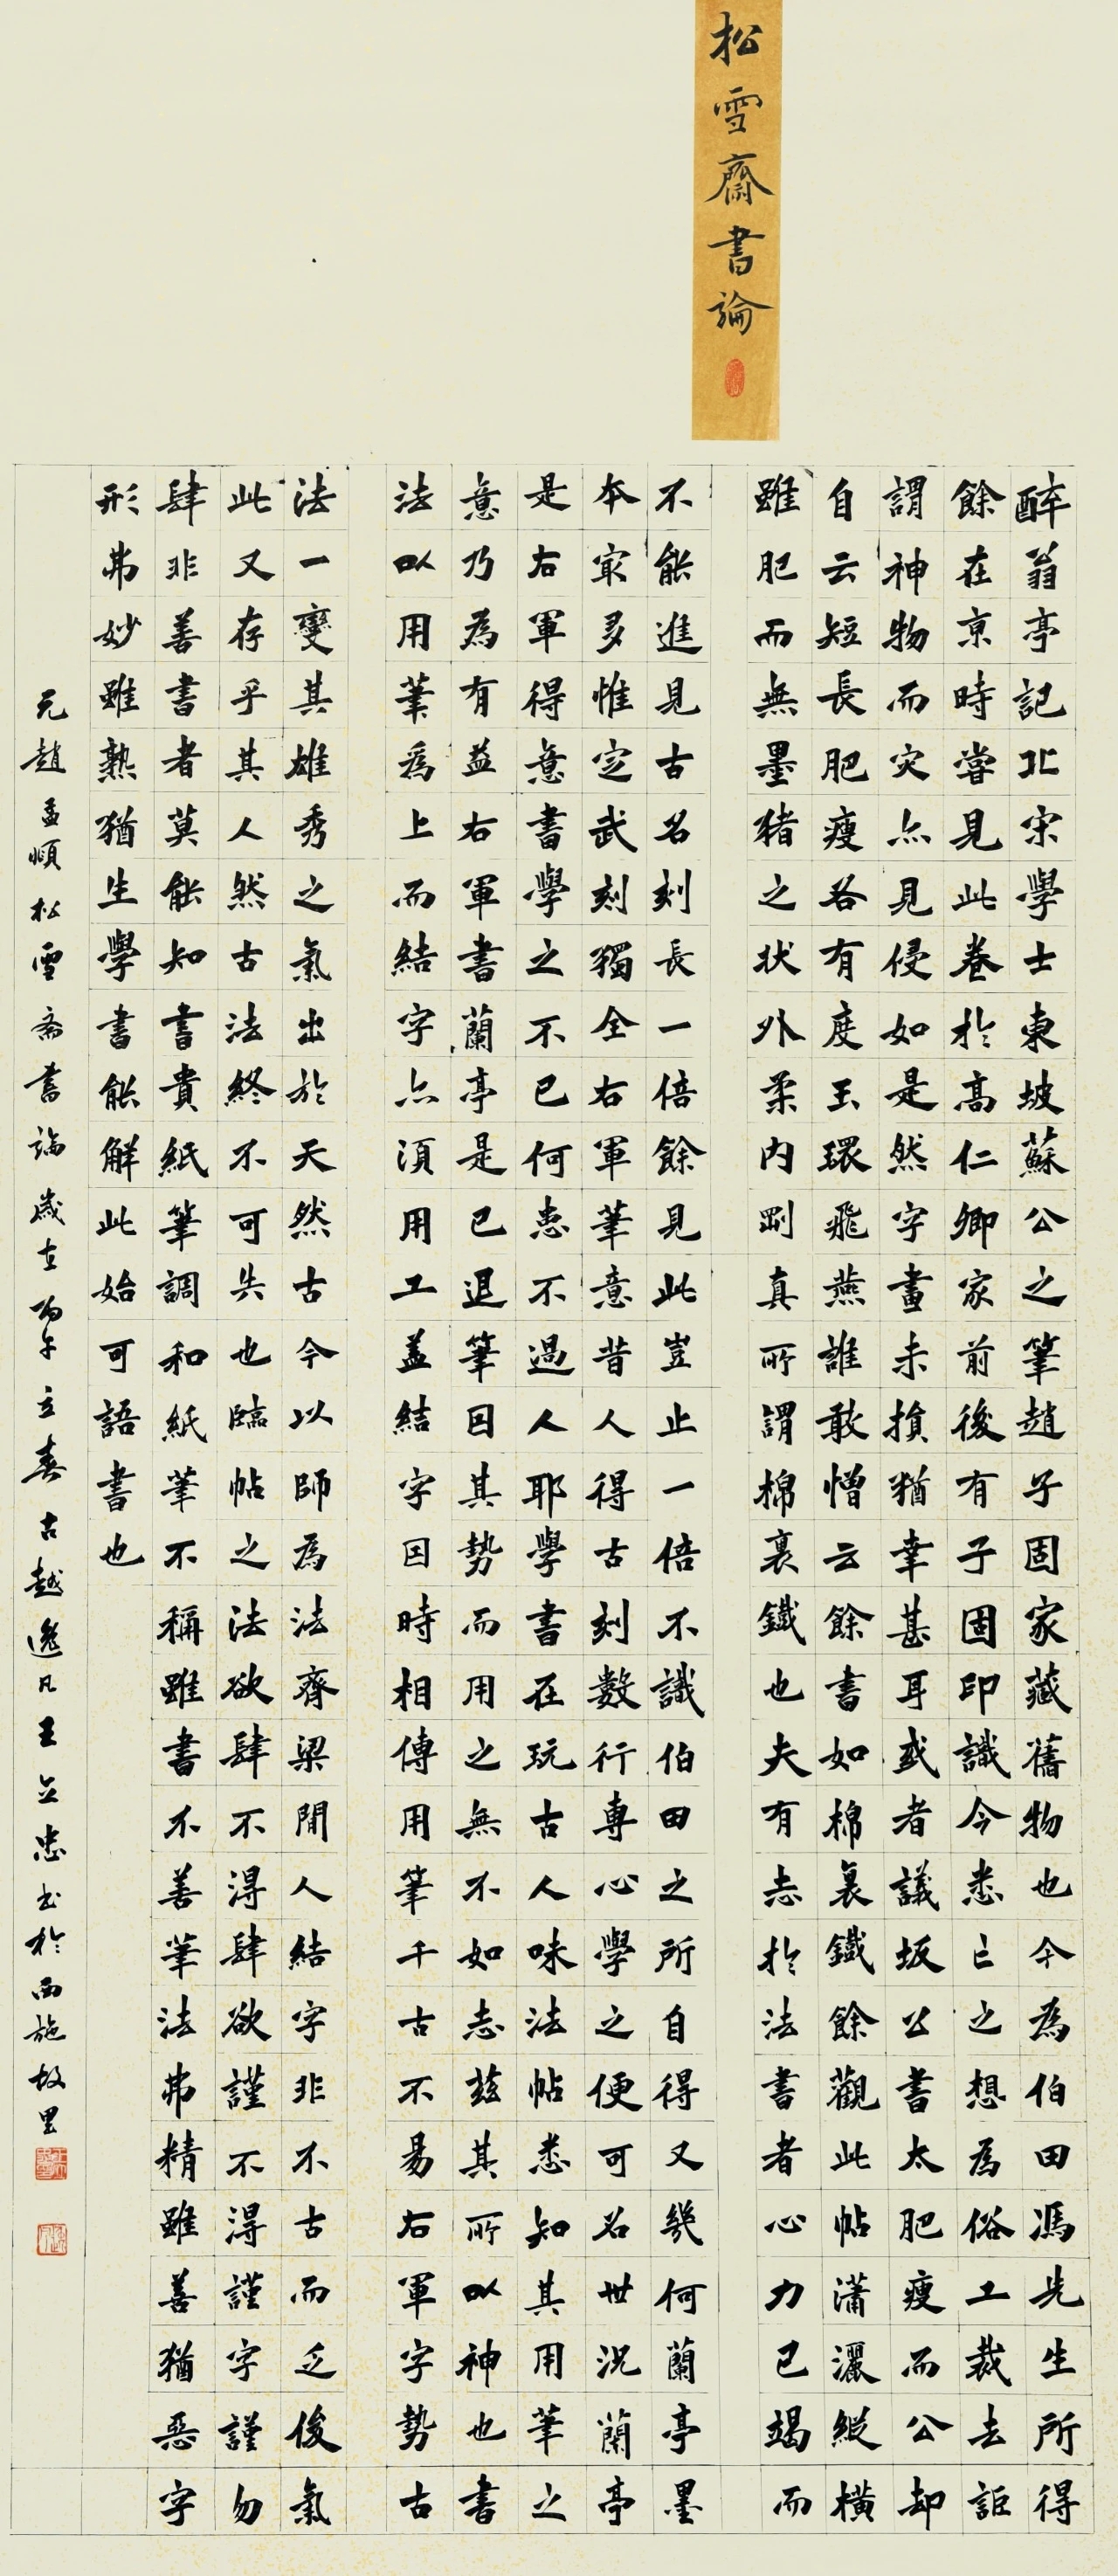 松雪齋書論
醉翁亭記北宋學士東坡蘇公之筆趙子固家藏舊物也今為伯田馮先生所得
餘在京時嘗見此卷於高仁卿家前後有子固印識今悉亡之想為俗工裁去詎
謂神物而灾亦見侵如是然字畫未損猶幸甚耳或者議坂公書太肥瘦而公却
自云短長肥瘦各有度玉環飛燕誰敢憎云餘書如棉裹鐵餘觀此帖瀟灑縱橫
雖肥而無墨猪之狀外柔内剛真所謂棉裹鐵也夫有志於法書者心力已竭而
不能進見古名刻長一倍餘見此豈止一倍不識伯田之所自得又幾何蘭亭墨
本㝡多惟定武刻獨全右軍筆意昔人得古刻數行專心學之便可名世況蘭亭
是右軍得意書學之不已何患不過人耶學書在玩古人味法帖悉知其用筆之
意乃為有益右軍書蘭亭是已退筆因其勢而用之無不如志兹其所以神也書
法以用筆爲上而結字亦須用工盖結字因時相傳用筆千古不易右軍字勢古
法一變其雄秀之氣出於天然古今以師為法齊梁間人結字非不古而乏俊氣
此又存乎其人然古法終不可失也臨帖之法欲肆不得肆欲謹不得謹字謹勿
肆非善書者莫能知書貴紙筆調和紙筆不稱雖書不善筆法弗精雖善猶惡字
形弗妙雖熟猶生學書能解此始可語書也
元趙孟頫松雪斋書論歲在丙午立春古越逸凡王立忠书於西施故里